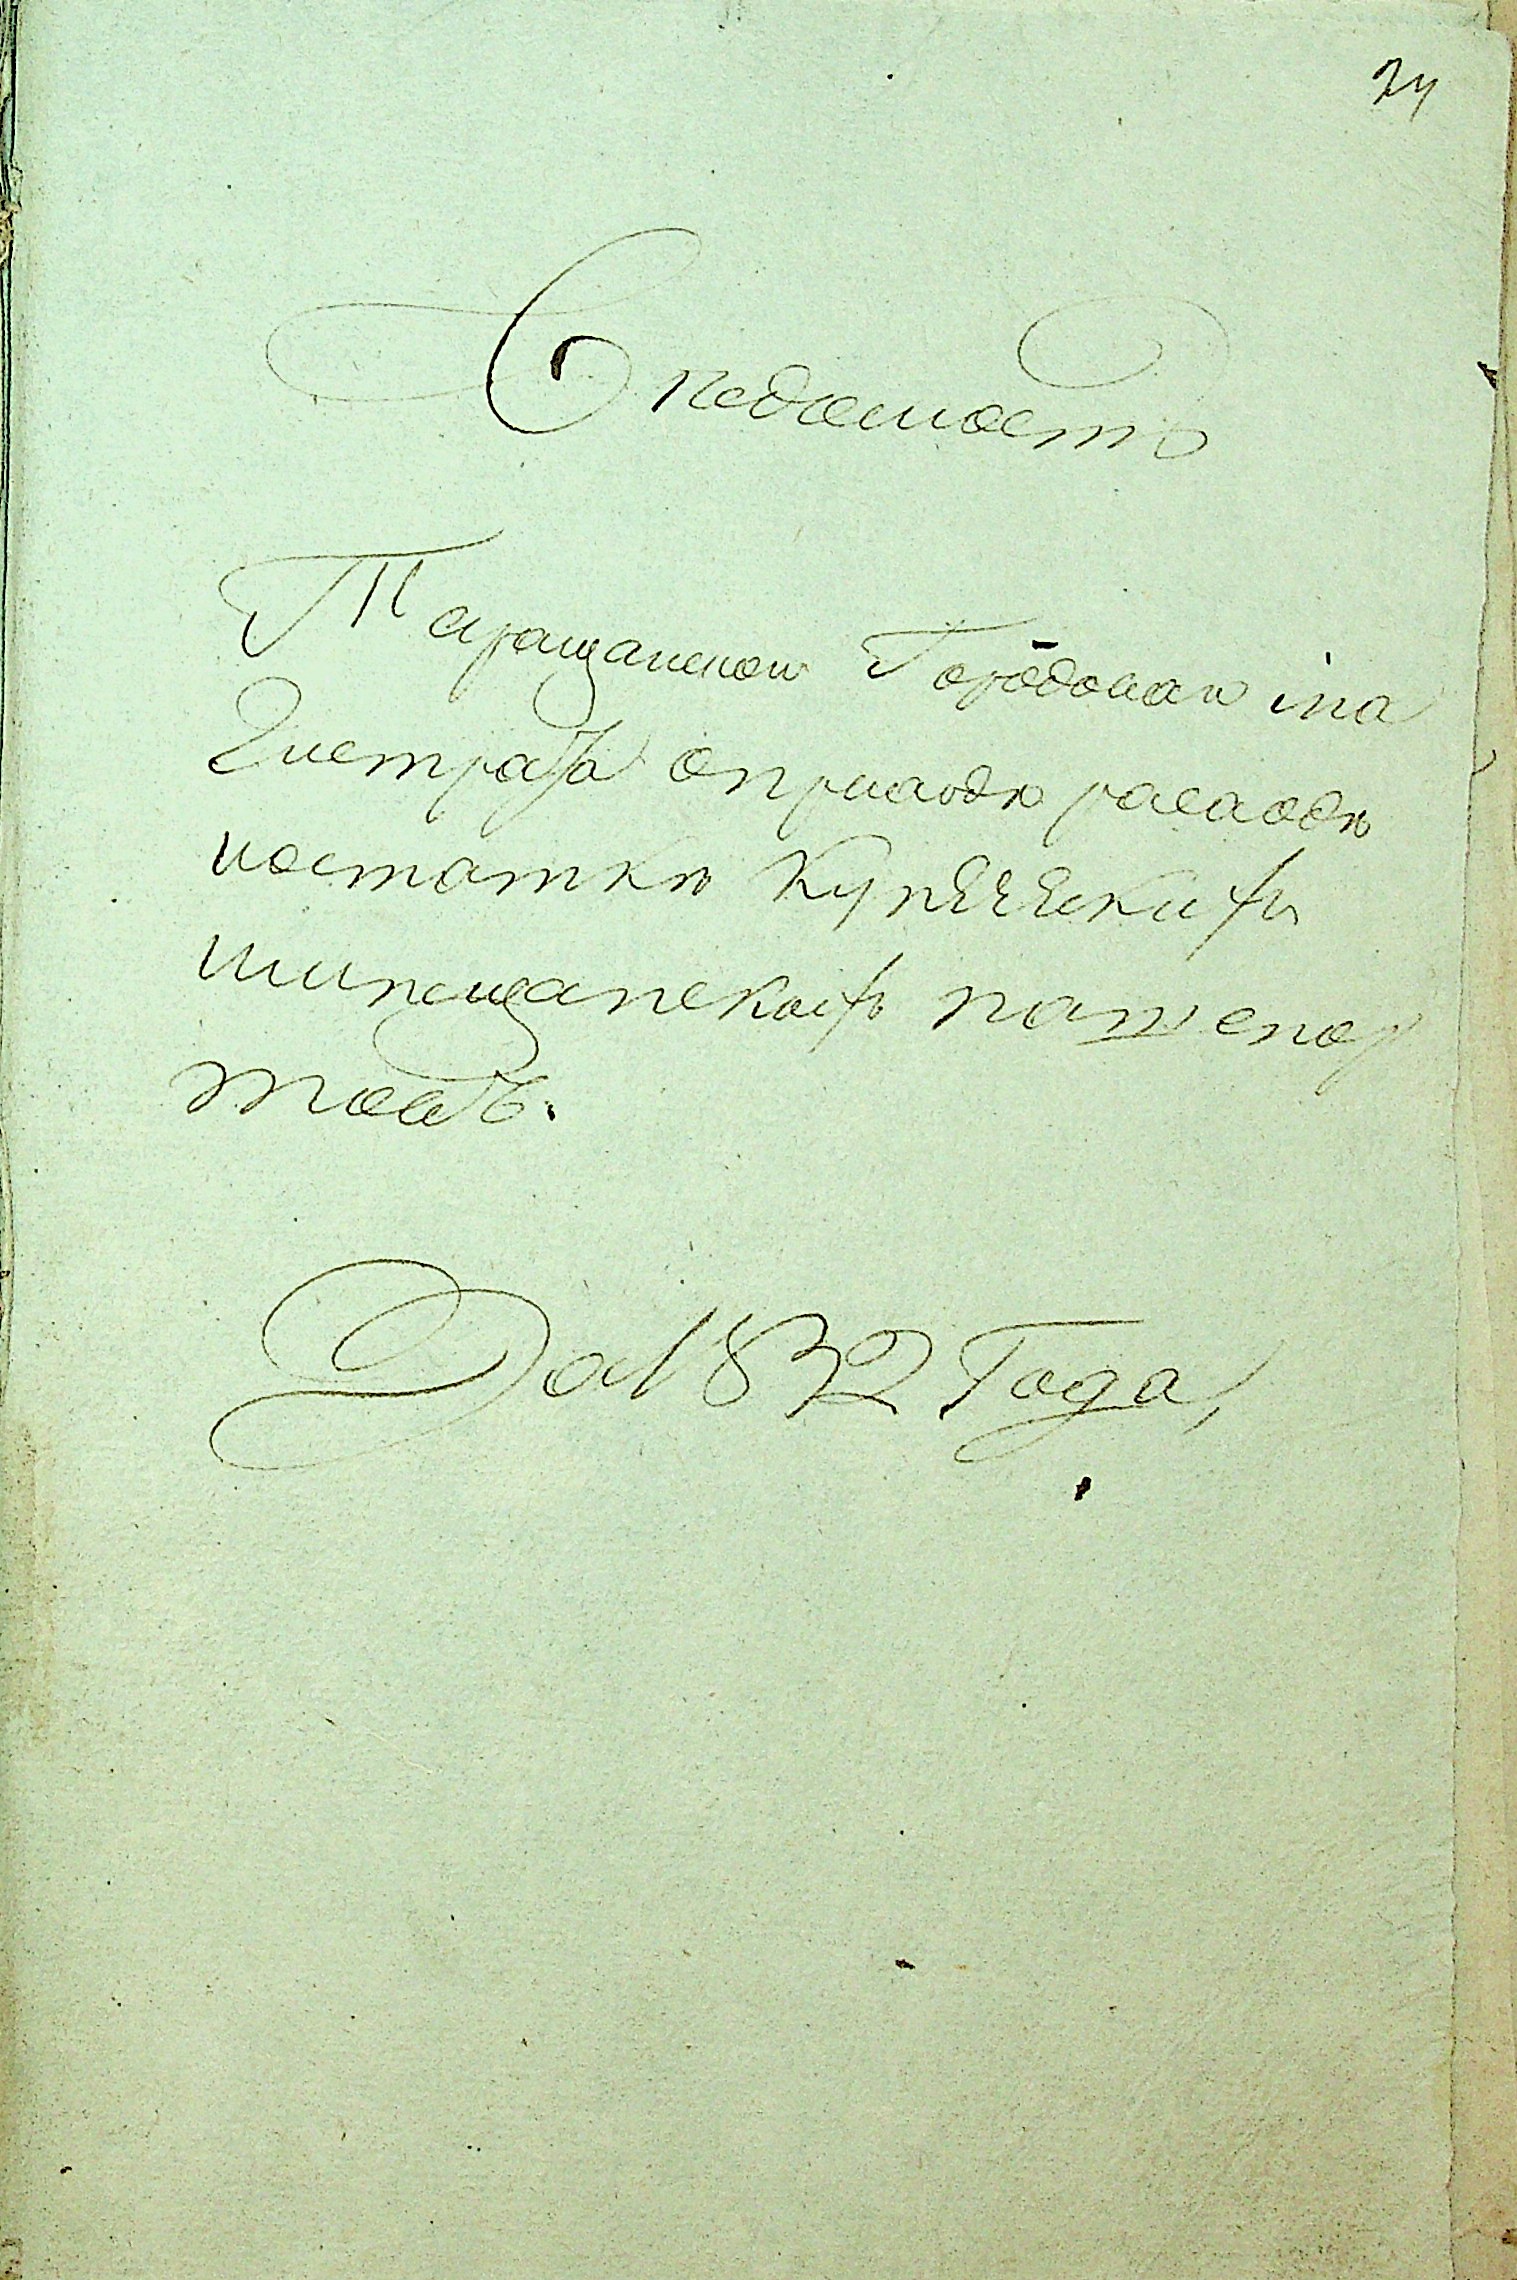 24
Вѣдомость
Таращанской Городовой ма
гистратъ оприходѣ расходѣ
иостаткѣ Купеческихъ
имѣщанскихъ пашепор
товъ.
За 1832 Года,